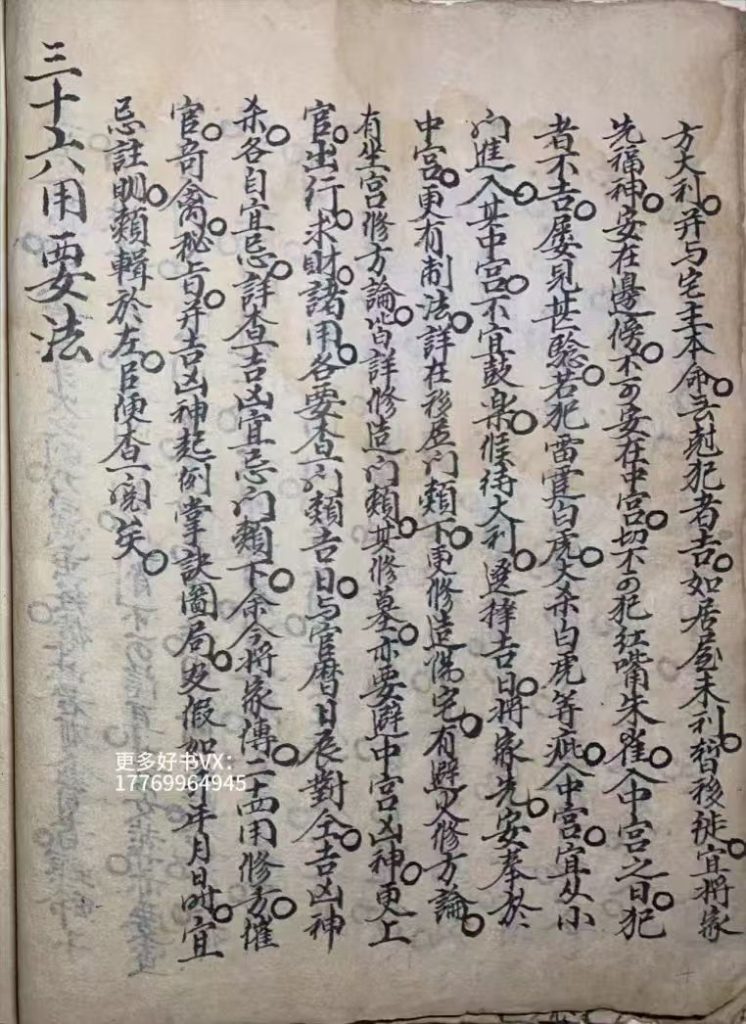 方大利。并与宅主本命。無尅犯者吉。如居屋未利暫移徙。宜將家
先福神。安在邊傍。不可安在中宫。切不可犯紅嘴朱雀。入中宫之日。犯
者不吉。屡見甚驗。若犯雷霆白虎。大杀白虎等疵。入中宫。宜从小
门進入。其中宫。不宜鼓樂。候待大利。選擇吉日。將家先。安奉於
中宫。更有制法。詳在移居门類下。更修造陽宅。有避人修方論。
有坐宫修方論。皆詳修造门類。其修墓。亦要避中宫凶神。更上
官。出行。求財。諸用。各要查门類吉日。与官曆日辰對仝。吉凶神
杀。各自宜忌。詳查吉凶宜忌门類下。余今將家傳。二十四用修方。催
官。奇禽。秘旨。并吉凶神起例掌訣圖局。及假如年月日時。宜
忌註明。類輯於左。以便查一覽矣。
三十六用要法
更多好书VX：
17769964945